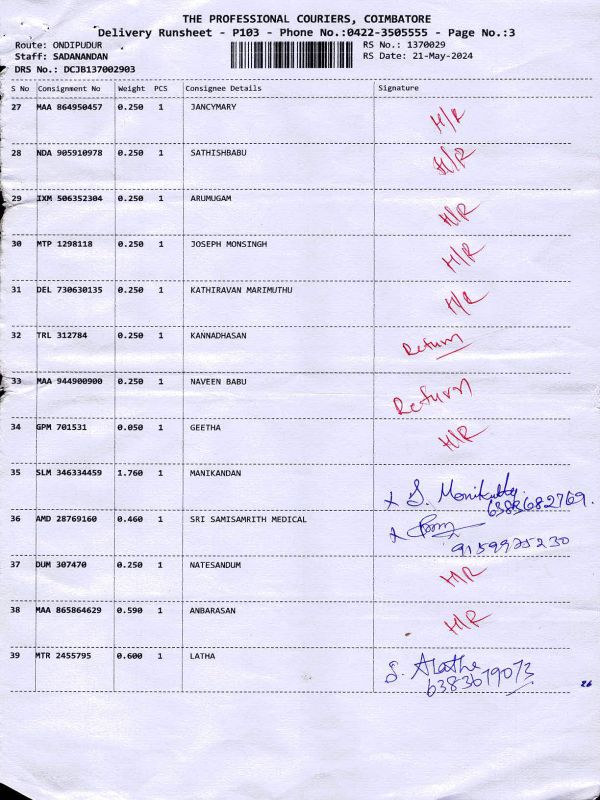 THE PROFESSIONAL COURIERS, COIMBATORE
Delivery Runsheet - P103 - Phone No.:0422-3505555 - Page No.:3
Route: ONDIPUDUR RS No.: 1370029
Staff: SADANANDAN RS Date: 21-May-2024
DRS No.: DCJB137002903
S No Consignment No Weight PCS Consignee Details Signature
27 MAA 864950457 0.250 1 JANCYMARY H/R
28 NDA 905910978 0.250 1 SATHISHBABU H/R
29 IXM 506352304 0.250 1 ARUMUGAM H/R
30 MTP 1298118 0.250 1 JOSEPH MONSINGH H/R
31 DEL 730630135 0.250 1 KATHIRAVAN MARIMUTHU H/R
32 TRL 312784 0.250 1 KANNADHASAN Return
33 MAA 944900900 0.250 1 NAVEEN BABU Return
34 GPM 701531 0.050 1 GEETHA H/R
35 SLM 346334459 1.760 1 MANIKANDAN x S.
6383682769.
36 AMD 28769160 0.460 1 SRI SAMISAMRITH MEDICAL x
9159975230
37 DUM 307470 0.250 1 NATESANDUM H/R
38 MAA 865864629 0.590 1 ANBARASAN H/R
39 MTR 2455795 0.600 1 LATHA S. Alatha
6383679073
26